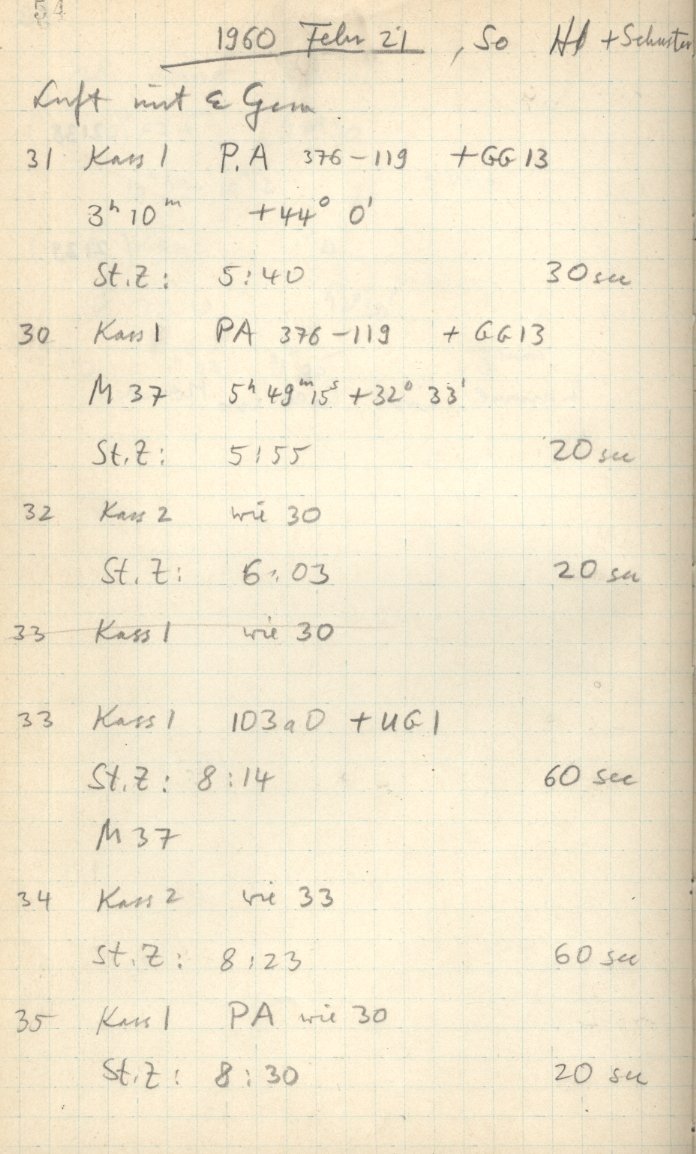 54
1960 Febr 21, So Hd + Schuster
Luft mit ε Gem
31 Kass 1 P.A 376-119 + GG 13
3ʰ 10ᵐ +44° 0'
St.Z: 5:40 30 sec
30 Kass 1 PA 376-119 + GG13
M 37 5ʰ 49ᵐ15ˢ +32° 33'
St.Z: 5:55 20 sec
32 Kass 2 wie 30
St.Z: 6:03 20 sec
33 Kass 1 wie 30
33 Kass 1 103aD + UG 1
St.Z: 8:14 60 sec
M 37
34 Kass 2 wie 33
St.Z: 8:23 60 sec
35 Kass 1 PA wie 30
St.Z: 8:30 20 sec